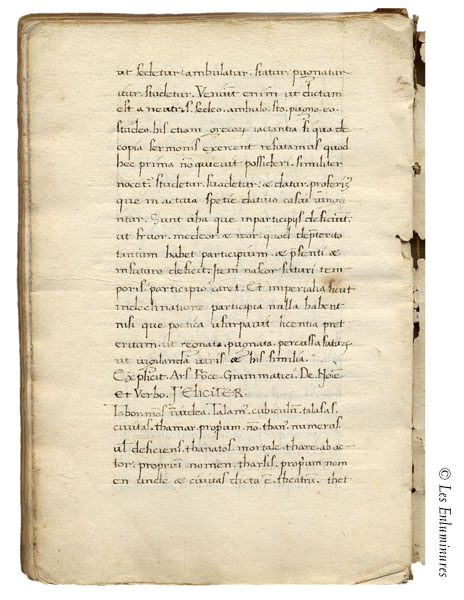 ut sedetur. ambulatur. statur. pugnatur
itur. studetur. Veniunt enim ut dictum
est a neutris. sedeo. ambulo. sto. pugno. eo.
studeo. his etiam grecorꝝ iactantia si qua de
copia sermonis exercent refutamus quod
hec prima nō quieuit possideri. similiter
nocet. studetur. suadetur. æ datur. proferiꝫ
que in actiua spetie datiuo casui iungu
ntur. Sunt alia que in participijs deficiūt.
ut fruor. medeor. æ quod
tantum habet participium. æ pſenti æ
infuturo deficit. Item naſcor futuri tem
poris participio caret. Et imperialia sicut
indeclinatione participia nulla habent
nisi que poetica usurpauit licentia pret
eritum. ut regnata. pugnata. percussa. futurꝝ
ut uigilanda uiris. æ his similia.
Explicit. Ars Foce. Grammatici. De Noīe
et Verbo. FELICITER.
labor. mos. Talam. cubiculū. talasa.
ciuitas. thamar. propium. no. than. numerus
ul deficiens. thanatos. mortale. thare. ab ac
tor. proprium nomen. tharsis. propium nom
en unde æ ciuitas dicta ē. theatrū. thet
© Les Enluminures